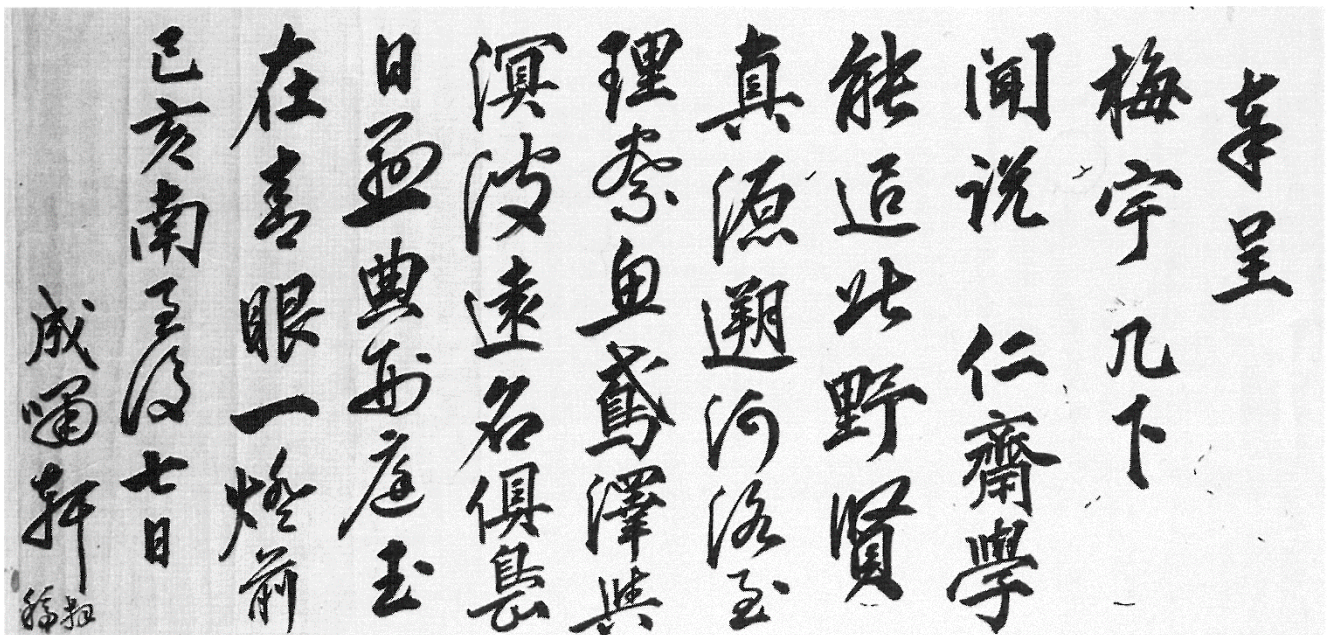 奉呈
梅宇 几下
聞説 仁齋學
能追此野賢
真源遡河洛至
理察魚鳶澤與
溟波遠名俱島
日懸典刑庭玉
在青眼一燈前
己亥南至後七日
成嘯軒